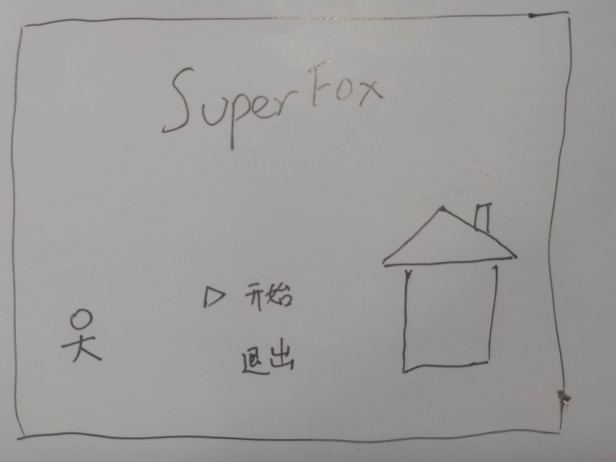 Super Fox
▷ 开始
退出